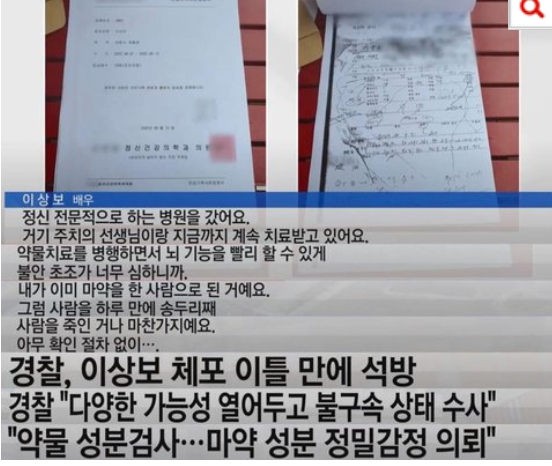 정신건강의학과 의원
이상보 배우
정신 전문적으로 하는 병원을 갔어요.
거기 주치의 선생님이랑 지금까지 계속 치료받고 있어요.
약물치료를 병행하면서 뇌 기능을 빨리 할 수 있게
불안 초조가 너무 심하니까.
내가 이미 마약을 한 사람으로 된 거예요.
그럼 사람을 하루 만에 송두리째
사람을 죽인 거나 마찬가지예요.
아무 확인 절차 없이….
경찰, 이상보 체포 이틀 만에 석방
경찰 "다양한 가능성 열어두고 불구속 상태 수사"
"약물 성분검사…마약 성분 정밀감정 의뢰"